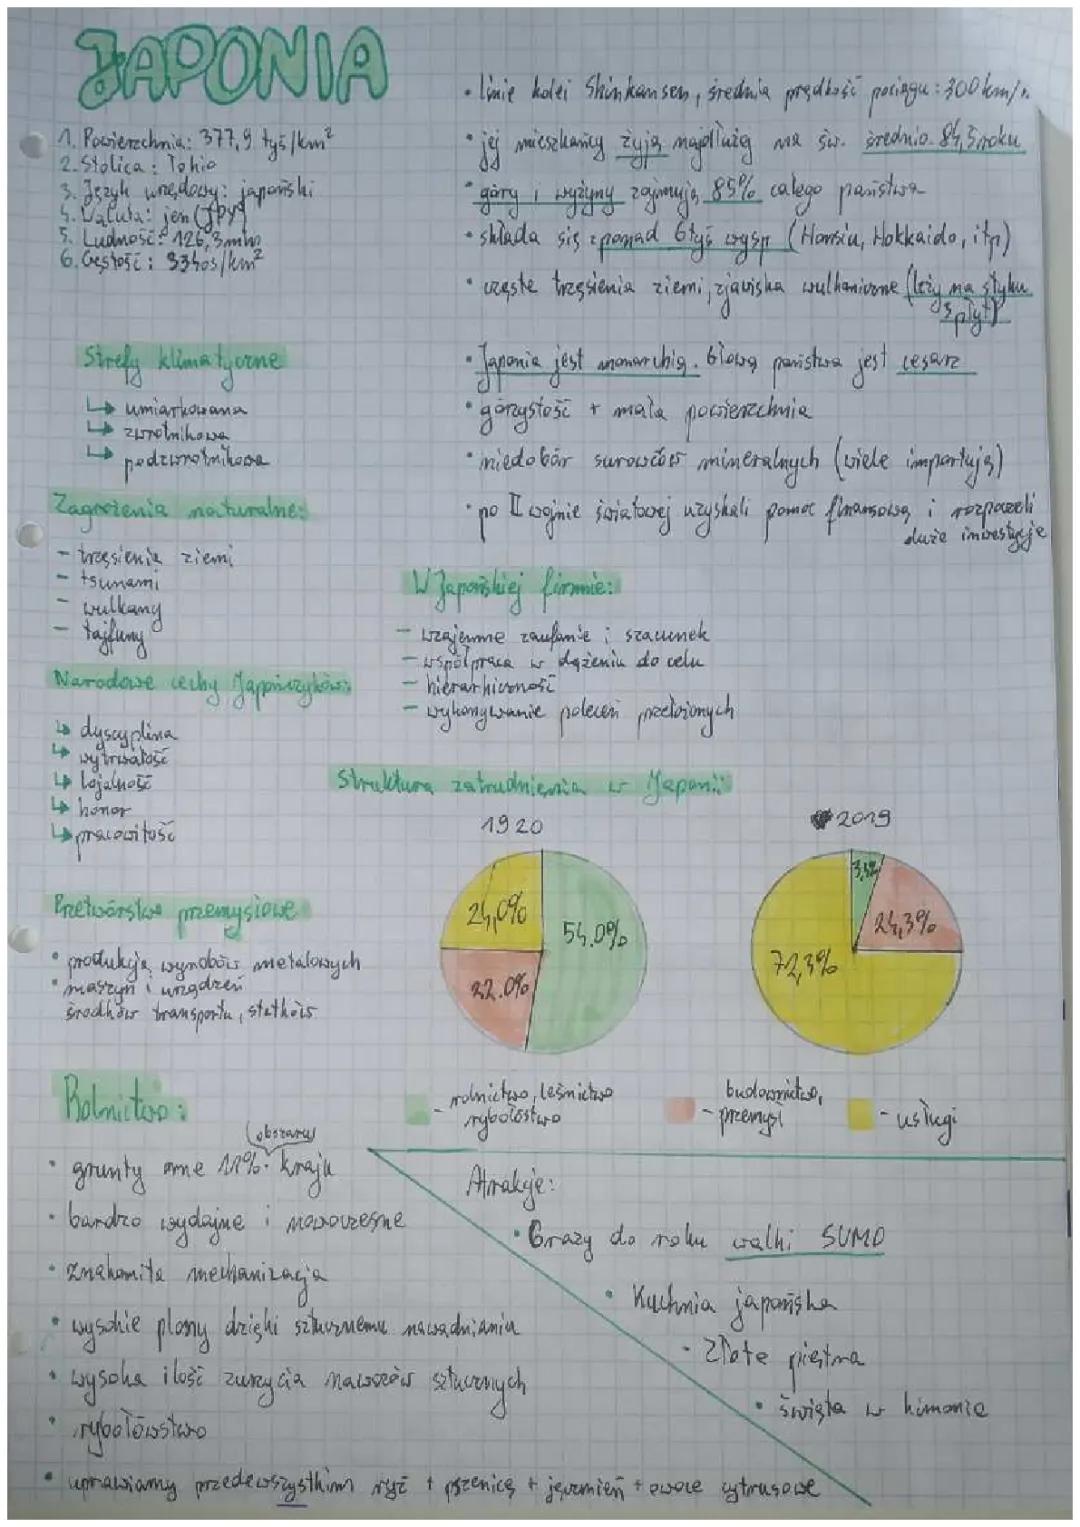 JAPONIA
1. Powierzchnia: 377,9 tyś/km²
2. Stolica: Tokio
3. Język urzędowy: japoński
4. Waluta: jen (JPY)
5. Ludność: 126,3 mln
6. Gęstość: 334os/km²
Strefy klimatyczne
↳ umiarkowana
↳ zwrotnikowa
↳ podzwrotnikowa
Zagrożenia naturalne:
- trzęsienia ziemi
- tsunami
- wulkany
- tajfuny
Narodowe cechy Japończyków:
↳ dyscyplina
↳ wytrwałość
↳ lojalność
↳ honor
↳ pracowitość
Przetwórstwo przemysłowe
• produkcja wyrobów metalowych
• maszyn i urządzeń
środków transportu, statków
• linie kolei Shinkansen, średnia prędkość pociągu: 300km/h
• jej mieszkańcy żyją najdłużej na św. średnio 84,5 roku
• góry i wyżyny zajmują 85% całego państwa
• składa się z ponad 6tyś wysp (Honsiu, Hokkaido, itp)
• częste trzęsienia ziemi, zjawiska wulkaniczne (leży na styku
3 płyt)
• Japonia jest monarchią. Głową państwa jest cesarz
• górzystość + mała powierzchnia
• niedobór surowców mineralnych (wiele importują)
• po II wojnie światowej uzyskali pomoc finansową i rozpoczeli
duże inwestycje
W Japońskiej firmie:
- wzajemne zaufanie i szacunek
- współpraca w dążeniu do celu
- hierarhiczność
- wykonywanie poleceń przełożonych
Struktura zatrudnienia w Japonii
1920
24,0%
54.0%
22.0%
2019
3,4%
24,3%
72,3%
- rolnictwo, leśnictwo
rybołóstwo
budownictwo,
- przemysł
- usługi
Rolnictwo:
(obszaru)
• grunty orne 11% kraju
• bardzo wydajne i nowoczesne
• znakomita mechanizacja
• wysokie plony dzięki sztucznemu nawadnianiu
• wysoka ilość zużycia nawozów sztucznych
• rybołówstwo
• uprawiamy przedewszystkim ryż + pszenicę + jęczmień + owoce cytrusowe
Atrakcje:
• 6 razy do roku walki SUMO
• Kuchnia japońska
• Złote piętra
• święta w kimonie